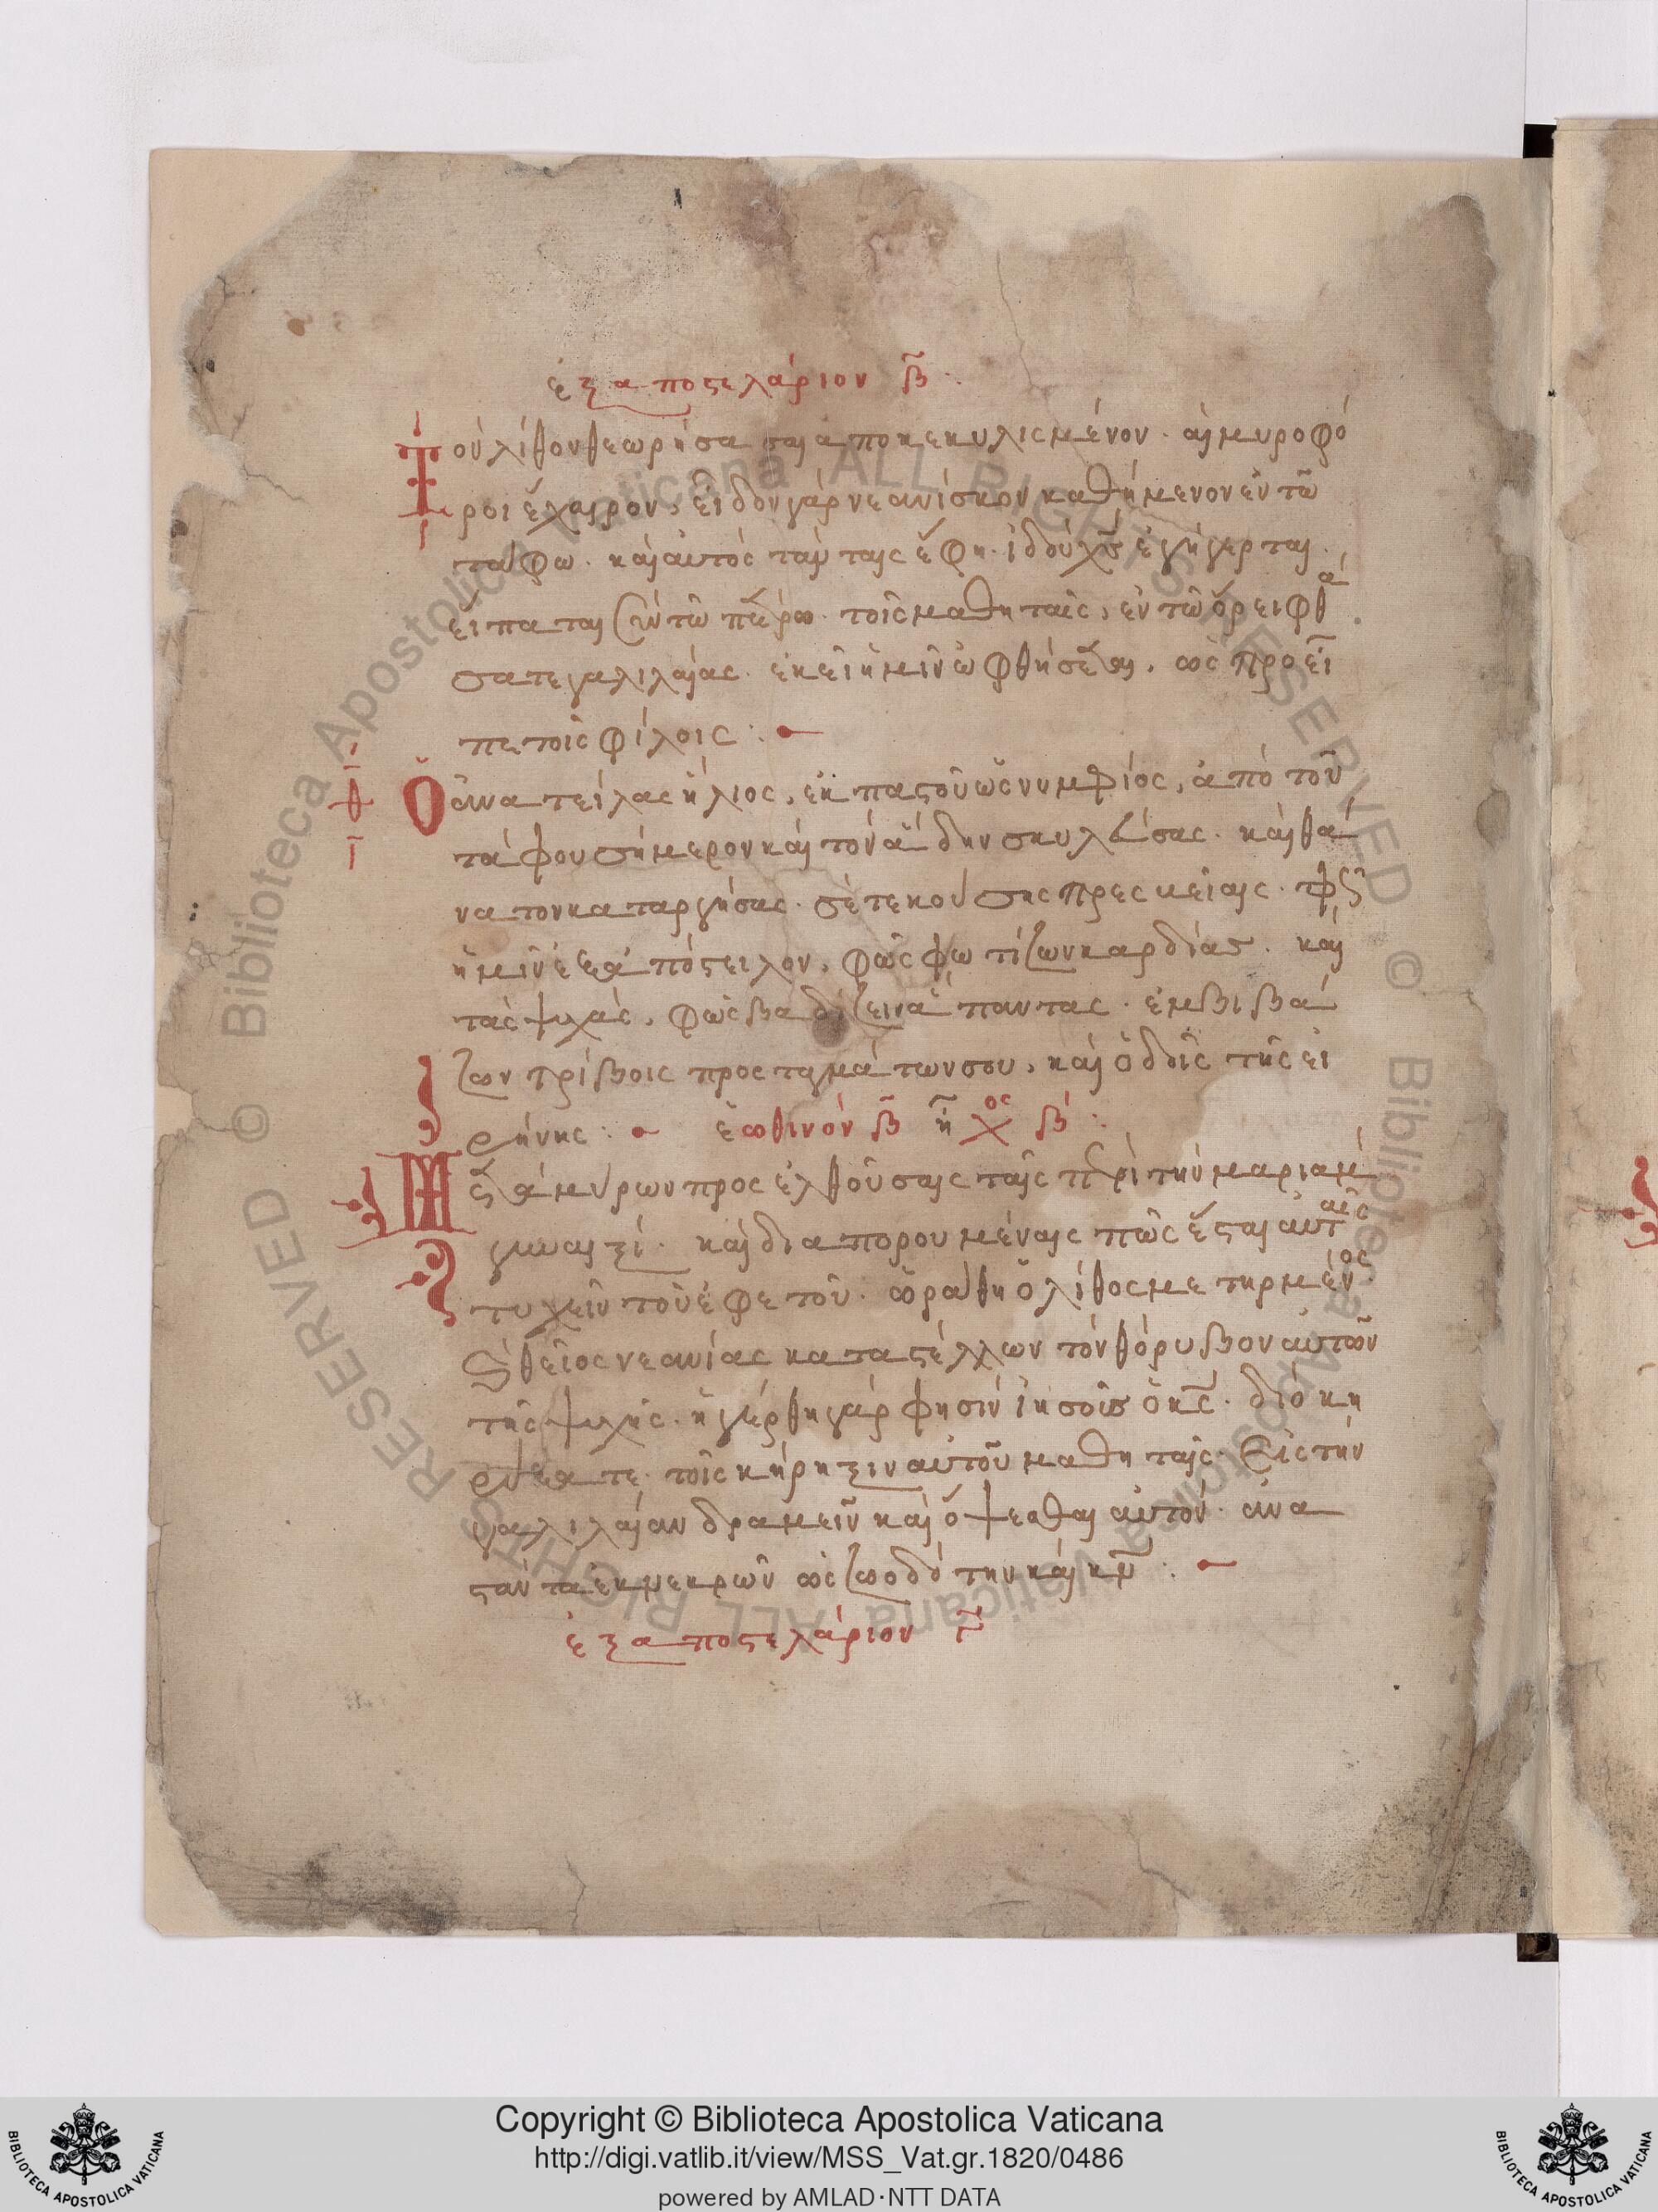 ἐξαποστελάριον β̄
Τὸν λίθον θεωρήσασαι ἀποκεκυλισμένον· αἱ μυροφό
ροι ἔχαιρον, εἶδον γὰρ νεανίσκον καθήμενον ἐν τῶ
τάφω· καὶ αὐτὸς ταύταις ἔφη· ἰδοὺ χς ἐγήγερται·
εἴπαται σὺν τῶ πέτρω· τοῖς μαθηταῖς, ἐν τῶ ὄρει φθά
σατε γαλιλαίας· ἐκεῖ ἡμῖν ὀφθήσεται, ὡς προεῖ
πε τοῖς φίλοις :
θ
Ὁ ἀνατείλας ἥλιος, ἐκ παστοῦ ὡς νυμφίος, ἀπὸ τοῦ
τάφου σήμερον καὶ τὸν ἅδην σκυλεύσας· καὶ θά
νατον καταργήσας· σὲ τεκούσης πρεσβείαις· φῶς
ἡμῖν ἐξαπόστειλον, φῶς φωτίζων καρδίας· καὶ
τὰς ψυχὰς, φῶς βαδίζειν ἅπαντας· ἐμβιβά
ζων τρίβοις προσταγμάτων σου, καὶ ὁδοῖς τῆς εἰ
ρήνης : ἑωθινόν β̄ ἦχος β́ :
Μετὰ μύρων προσελθούσαις ταῖς περὶ τὴν μαριὰμ
γυναιξί· καὶ διαπορουμέναις πῶς ἔσται αὐταῖς
τυχεῖν τοῦ ἐφετοῦ· ὡράθη ὁ λίθος μετηρμένος·
καὶ θεῖος νεανίας καταστέλλων τὸν θόρυβον αὐτῶν
τῆς ψυχῆς· ἠγέρθη γάρ φησιν ἰησοῦς ὁ κς· διὸ κη
ρύξατε τοῖς κήρηξιν αὐτοῦ μαθηταῖς· εἰς τὴν
γαλιλαίαν δραμεῖν καὶ ὄψεσθαι αὐτὸν· ἀνα
στάντα ἐκ νεκρῶν ὡς ζωοδότην καὶ κν :
ἐξαποστελάριον γ̄
Copyright © Biblioteca Apostolica Vaticana
http://digi.vatlib.it/view/MSS_Vat.gr.1820/0486
powered by AMLAD·NTT DATA